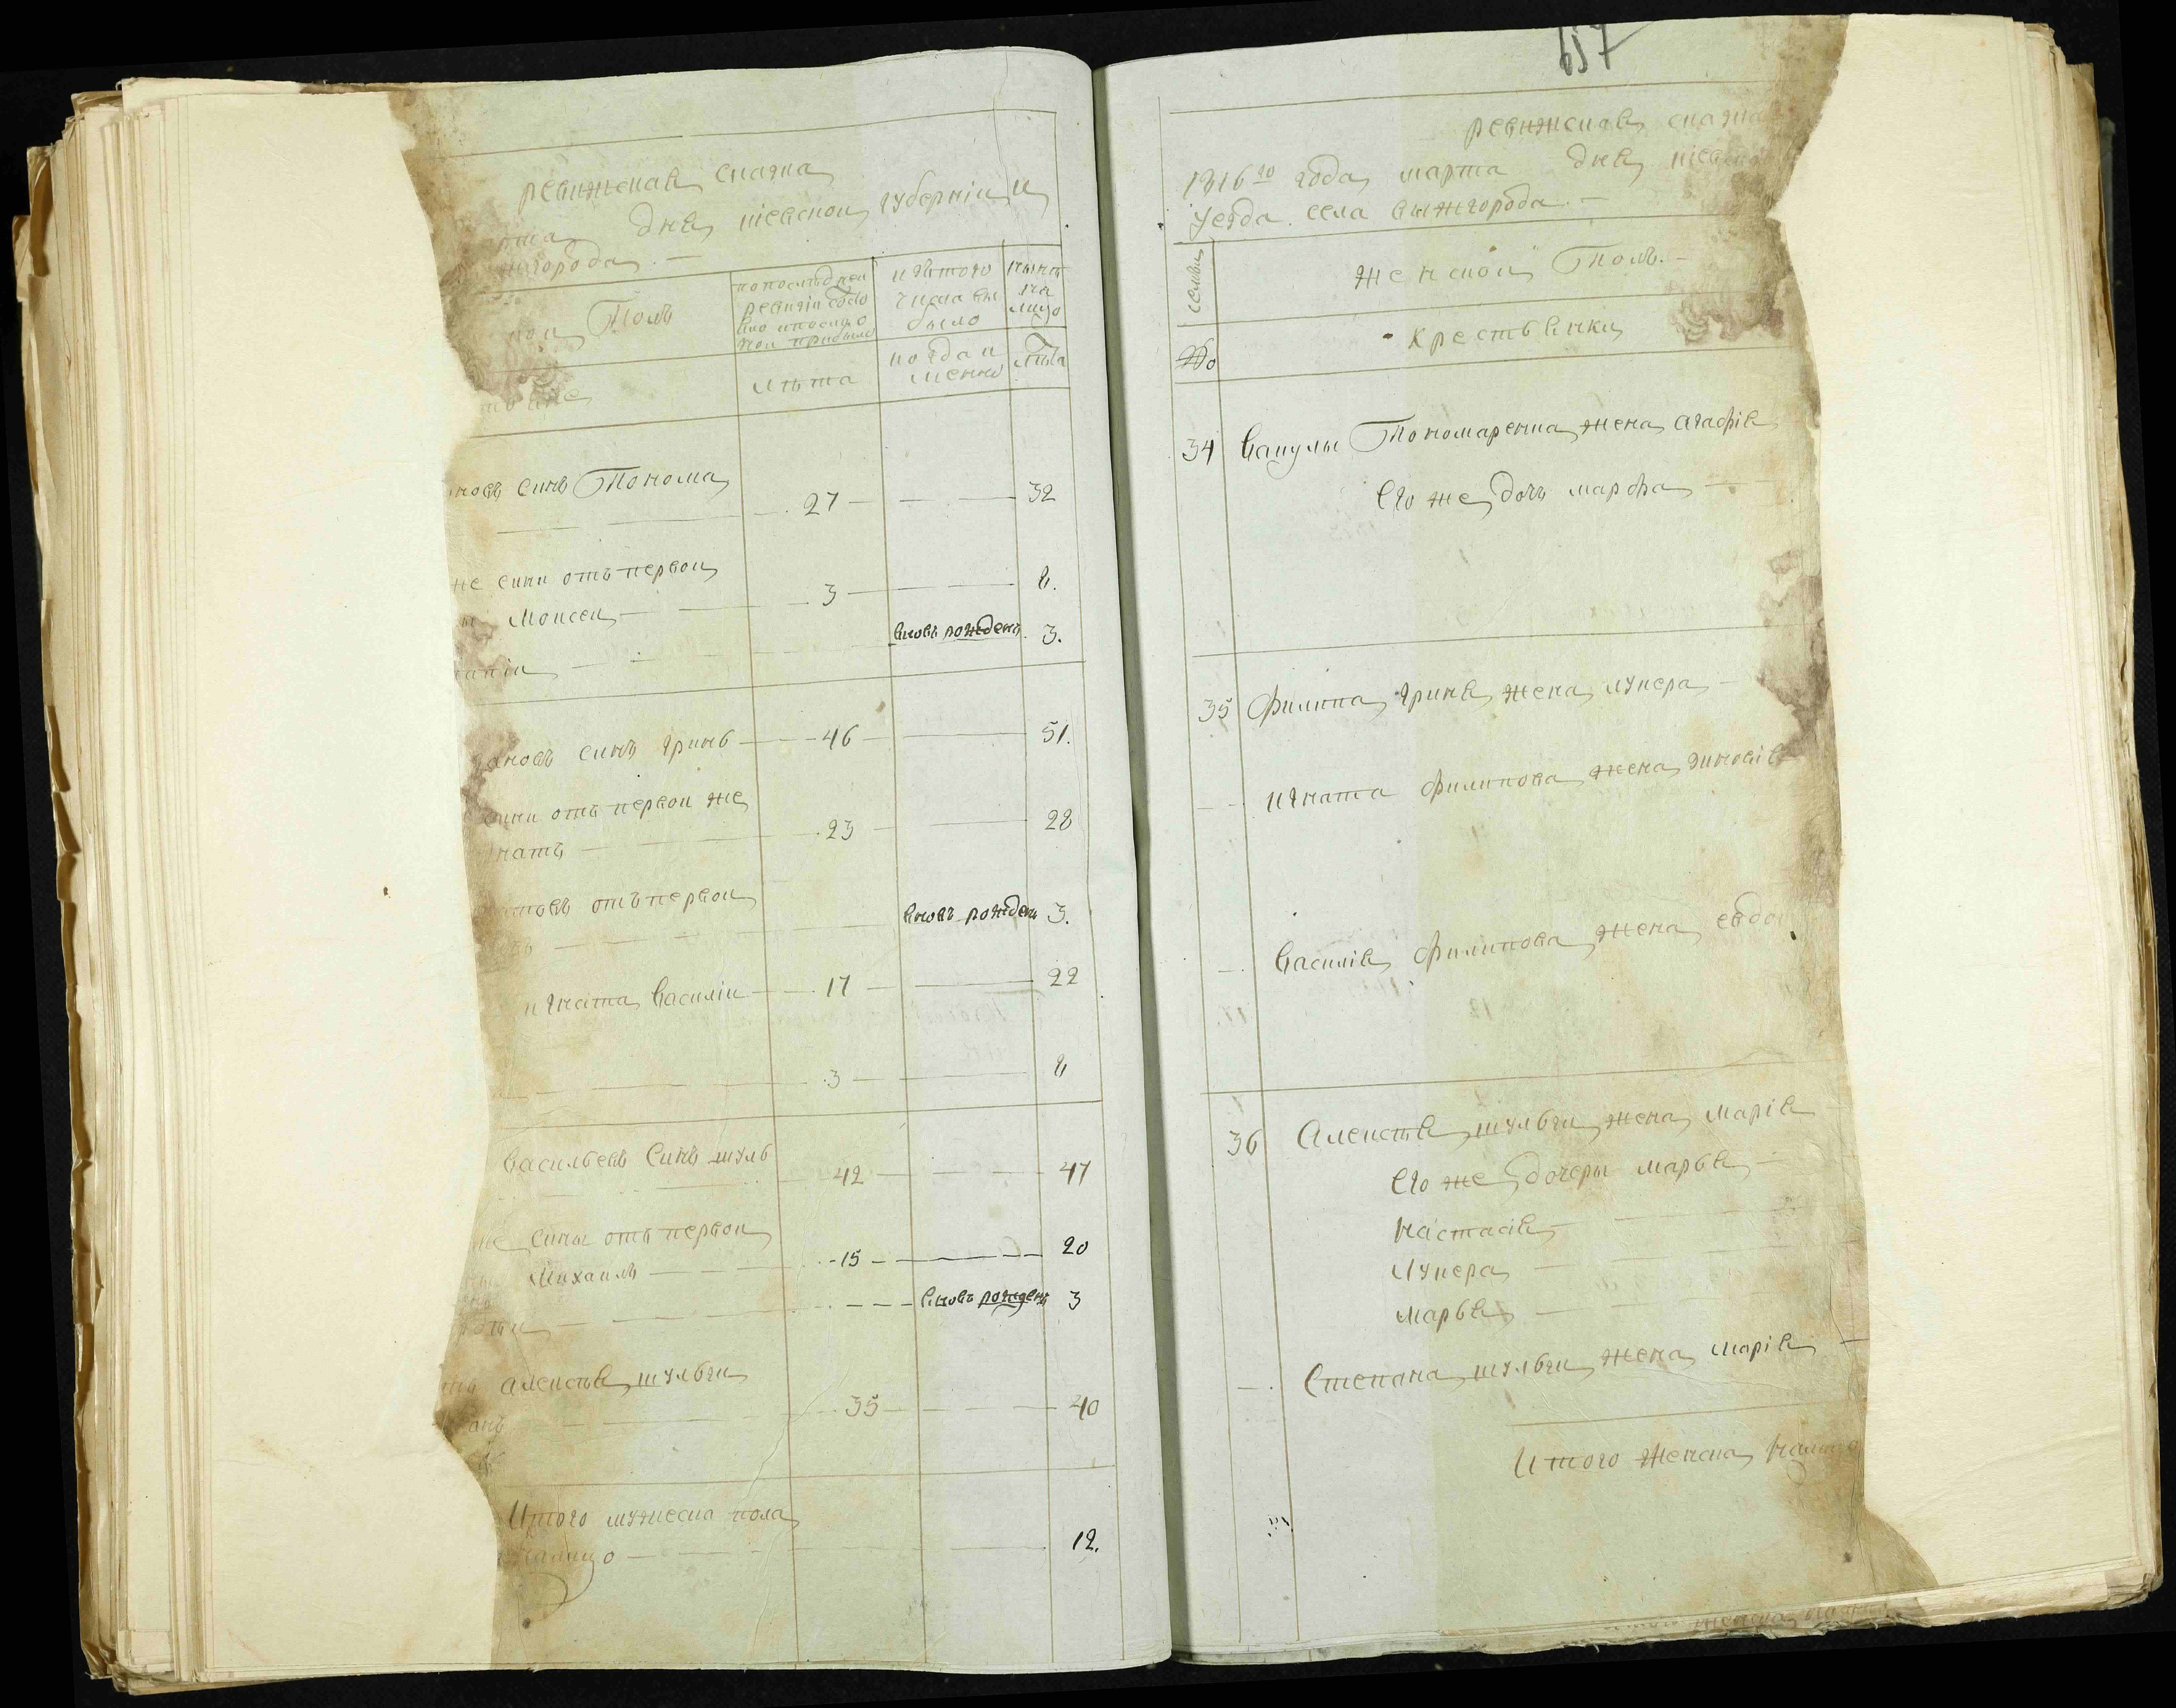 ревижская сказка
марта дня кіевской губерніи и
жгорода
ной Полъ
по последней ревизіи состо
яло и после
того прибыло
изъ того
числа вы
было
ныне
на
лицо
лѣта
когда и
менно
лѣта
новъ синъ Понома
27 32
же сини отъ первои
Моисеи 3 8.
вновь рожденъ 3.
ановъ синъ гринь 46 51.
сини отъ первои же
гнатъ 23 28
отъ первои
вновь рожденъ 3.
игната василіи 17 22
3 8
васильевъ синъ шуль
42 47
же сины отъ первои
Михаилъ 15 20
вновь рожденъ 3
алексѣя шульги
35 40
Итого мужеска пола
налицо 12.
657
ревижская сказка
1816го года марта дня кіевской
уезда села вижгорода
семьи
женской Полъ
№
крестьянки
34 вакулы Пономаренка жена агафія
его же дочь марфа
35 филипа гриня жена лукера
игната филипова жена зиновія
василія филипова жена евдо
36 Алексѣя шульги жена марія
его же дочеры марья
настасія
лукера
марья
Степана шульги жена марія
Итого женска налицо